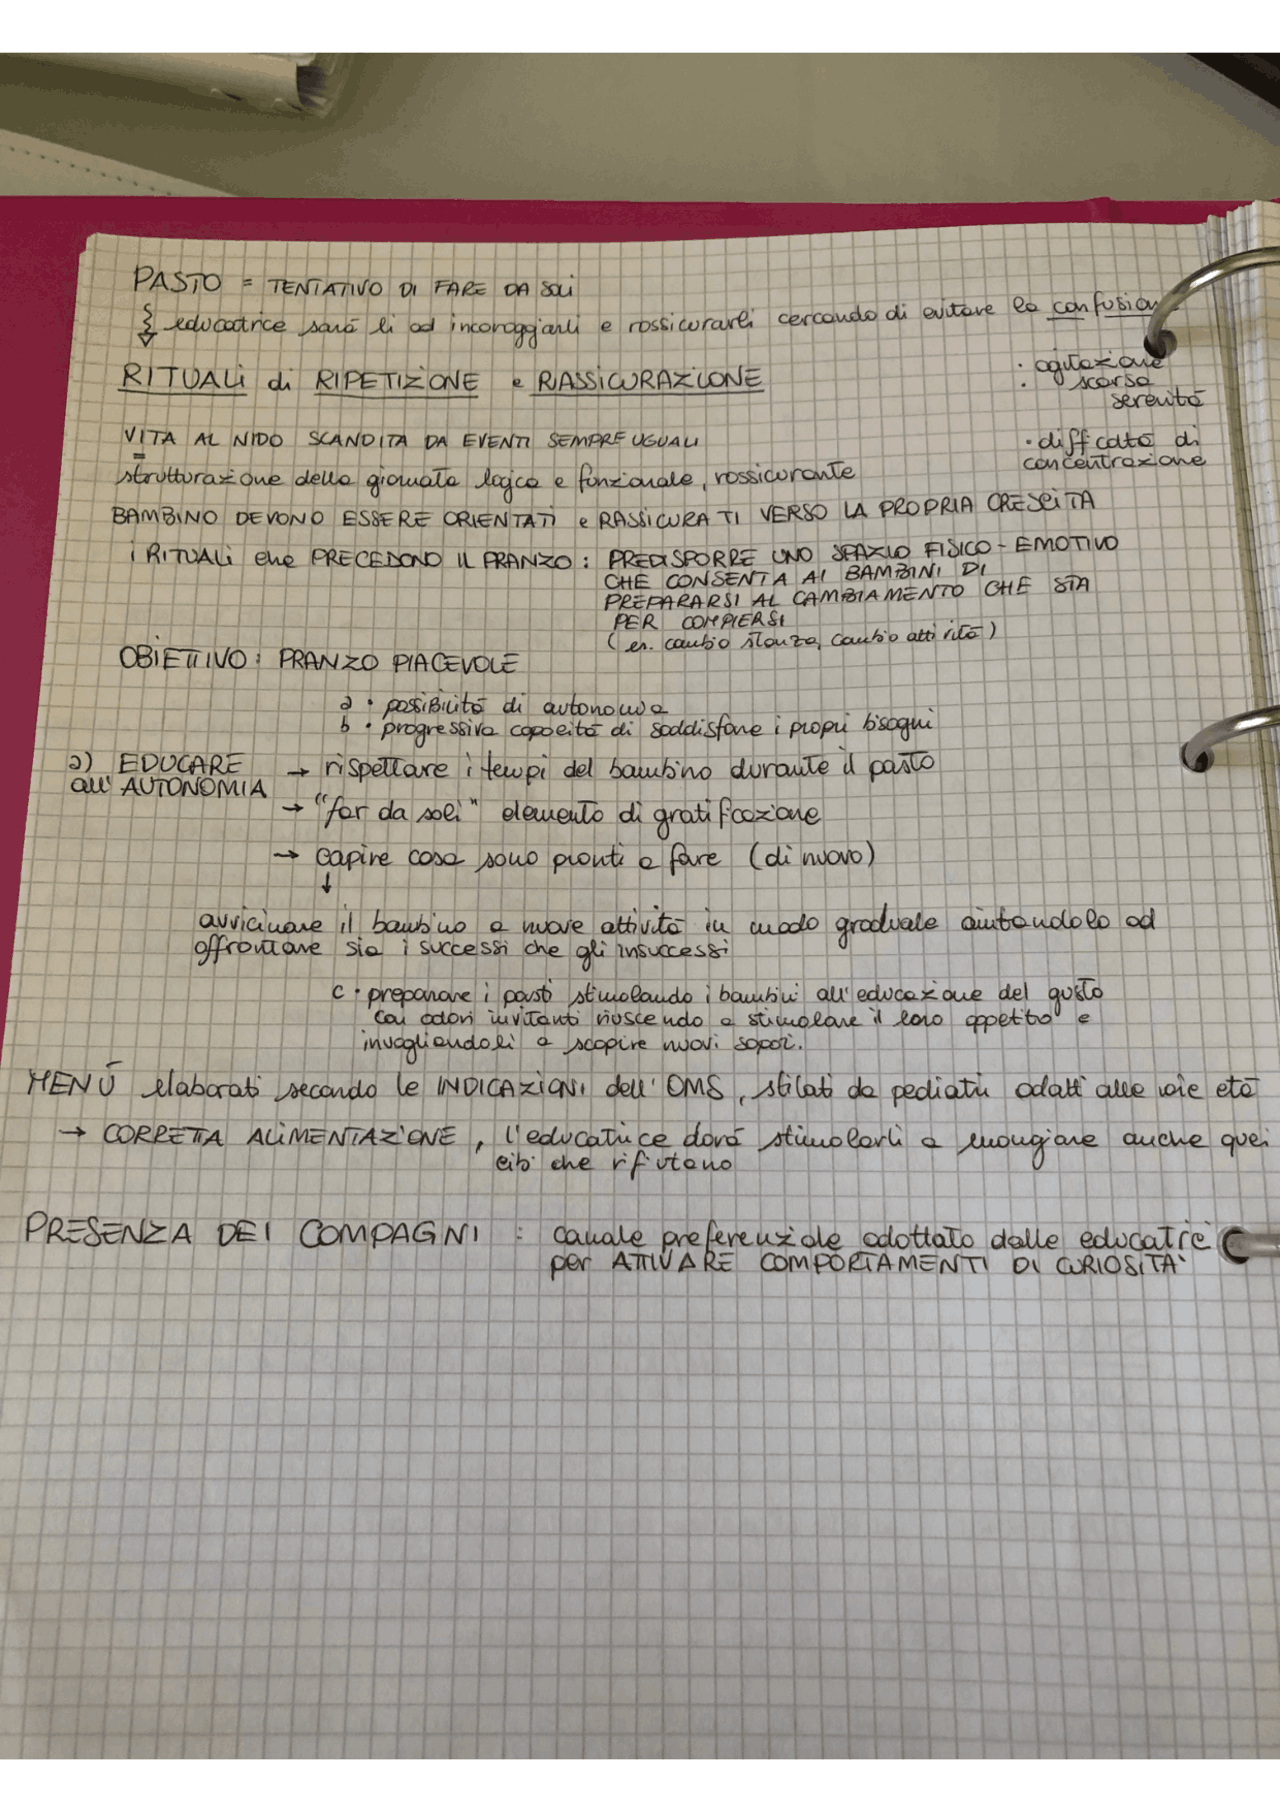 PASTO = TENTATIVO DI FARE DA SOLI
educatrice sarà li ad incoraggiarli e rassicurarli cercando di evitare la confusione
· agitazione
· scarsa
serenità
RITUALI di RIPETIZIONE e RIASSICURAZIONE
VITA AL NIDO SCANDITA DA EVENTI SEMPRE UGUALI
· difficoltà di
concentrazione
=
strutturazione della giornata logica e funzionale, rassicurante
BAMBINO DEVONO ESSERE ORIENTATI e RASSICURATI VERSO LA PROPRIA CRESCITA
i RITUALI che PRECEDONO IL PRANZO : PREDISPORRE UNO SPAZIO FISICO - EMOTIVO
CHE CONSENTA AI BAMBINI DI
PREPARARSI AL CAMBIAMENTO CHE STA
PER COMPIERSI
(es. cambio stanza, cambio attività)
OBIETTIVO : PRANZO PIACEVOLE
a · possibilità di autonomia
b · progressiva capacità di soddisfare i propri bisogni
a) EDUCARE → rispettare i tempi del bambino durante il pasto
all' AUTONOMIA
→ "far da soli" elemento di gratificazione
→ capire cosa sono pronti a fare (di nuovo)
↓
avvicinare il bambino a nuove attività in modo graduale aiutandolo ad
affrontare sia i successi che gli insuccessi
c · preparare i pasti stimolando i bambini all'educazione del gusto
con odori invitanti riuscendo a stimolare il loro appetito e
invogliandoli a scopire nuovi sapori.
MENÚ elaborati secondo le INDICAZIONI dell' OMS, stilati da pediatri adatti alle varie età
→ CORRETTA ALIMENTAZIONE, l'educatrice dovrà stimolarli a mangiare anche quei
cibi che rifiutano
PRESENZA DEI COMPAGNI : canale preferenziale adottato dalle educatrici
per ATTIVARE COMPORTAMENTI DI CURIOSITA'